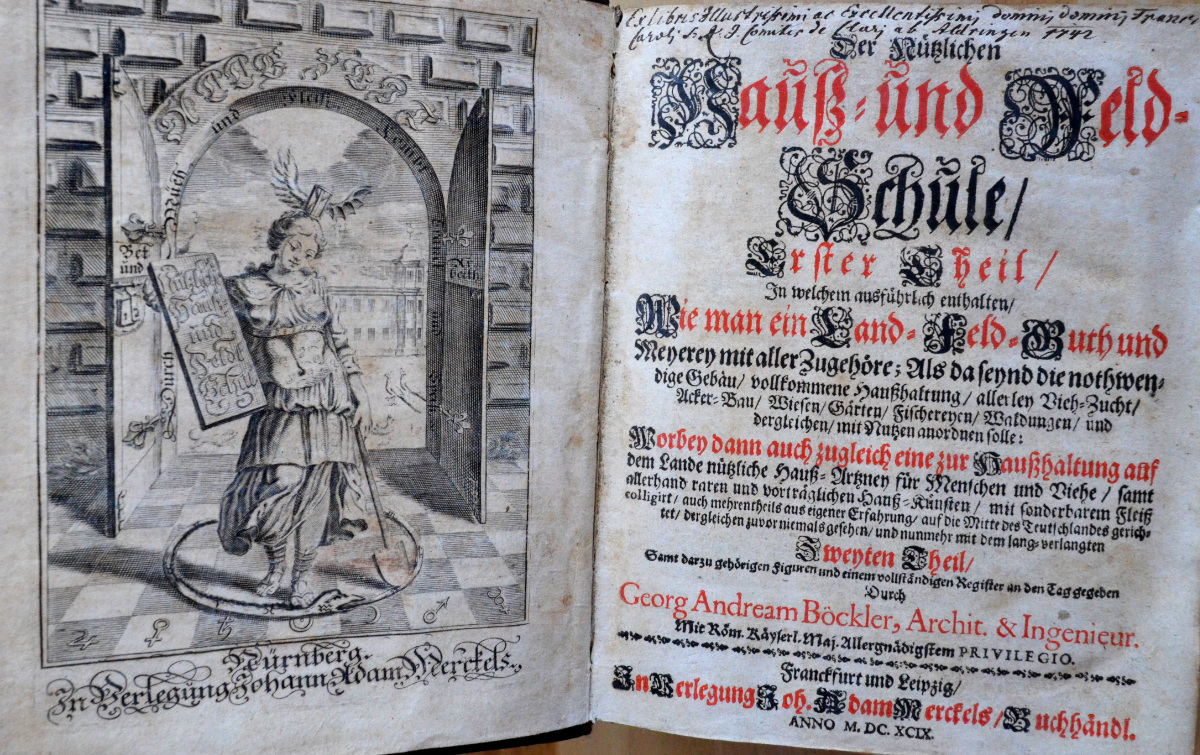 und Fleiß
Müh
Durch
Bet
und
Ar
beith
Nützliche
Hauß
und
Feldt
Schul
Nürnberg.
In Verlegung Johann Adam Merckels.
Ex libris Illustrissimi ac Excellentissimi domini, domini, Franc:
Caroli S. R. I. Comitis de Clarj ab Aldringen 1742
Der Nützlichen
Hauß- und Feld-
Schule/
Erster Theil/
In welchem ausführlich enthalten/
Wie man ein Land- Feld- Guth und
Meyerey mit aller Zugehöre; Als da seynd die nothwen-
dige Gebäu/ vollkommene Haußhaltung/ allerley Vieh-Zucht/
Acker-Bau/ Wiesen/ Gärten/ Fischereyen/ Waldungen/ und
dergleichen/ mit Nutzen anordnen solle:
Worbey dann auch zugleich eine zur Haußhaltung auf
dem Lande nützliche Hauß-Artzney für Menschen und Viehe/ samt
allerhand raren und vorträglichen Hauß-Künsten/ mit sonderbarem Fleiß
colligirt/ auch mehrentheils aus eigener Erfahrung/ auf die Mitte des Teutschlandes gerich-
tet/ dergleichen zuvor niemals gesehen/ und nunmehr mit dem lang-verlangten
Zweyten Theil/
Samt darzu gehörigen Figuren und einem vollständigen Register an den Tag gegeben
Durch
Georg Andream Böckler, Archit. & Ingenieur.
Mit Röm. Käyserl. Maj. Allergnädigstem PRIVILEGIO.
Franckfurt und Leipzig/
In Verlegung Joh. Adam Merckels/ Buchhändl.
ANNO M. DC. XCIX.